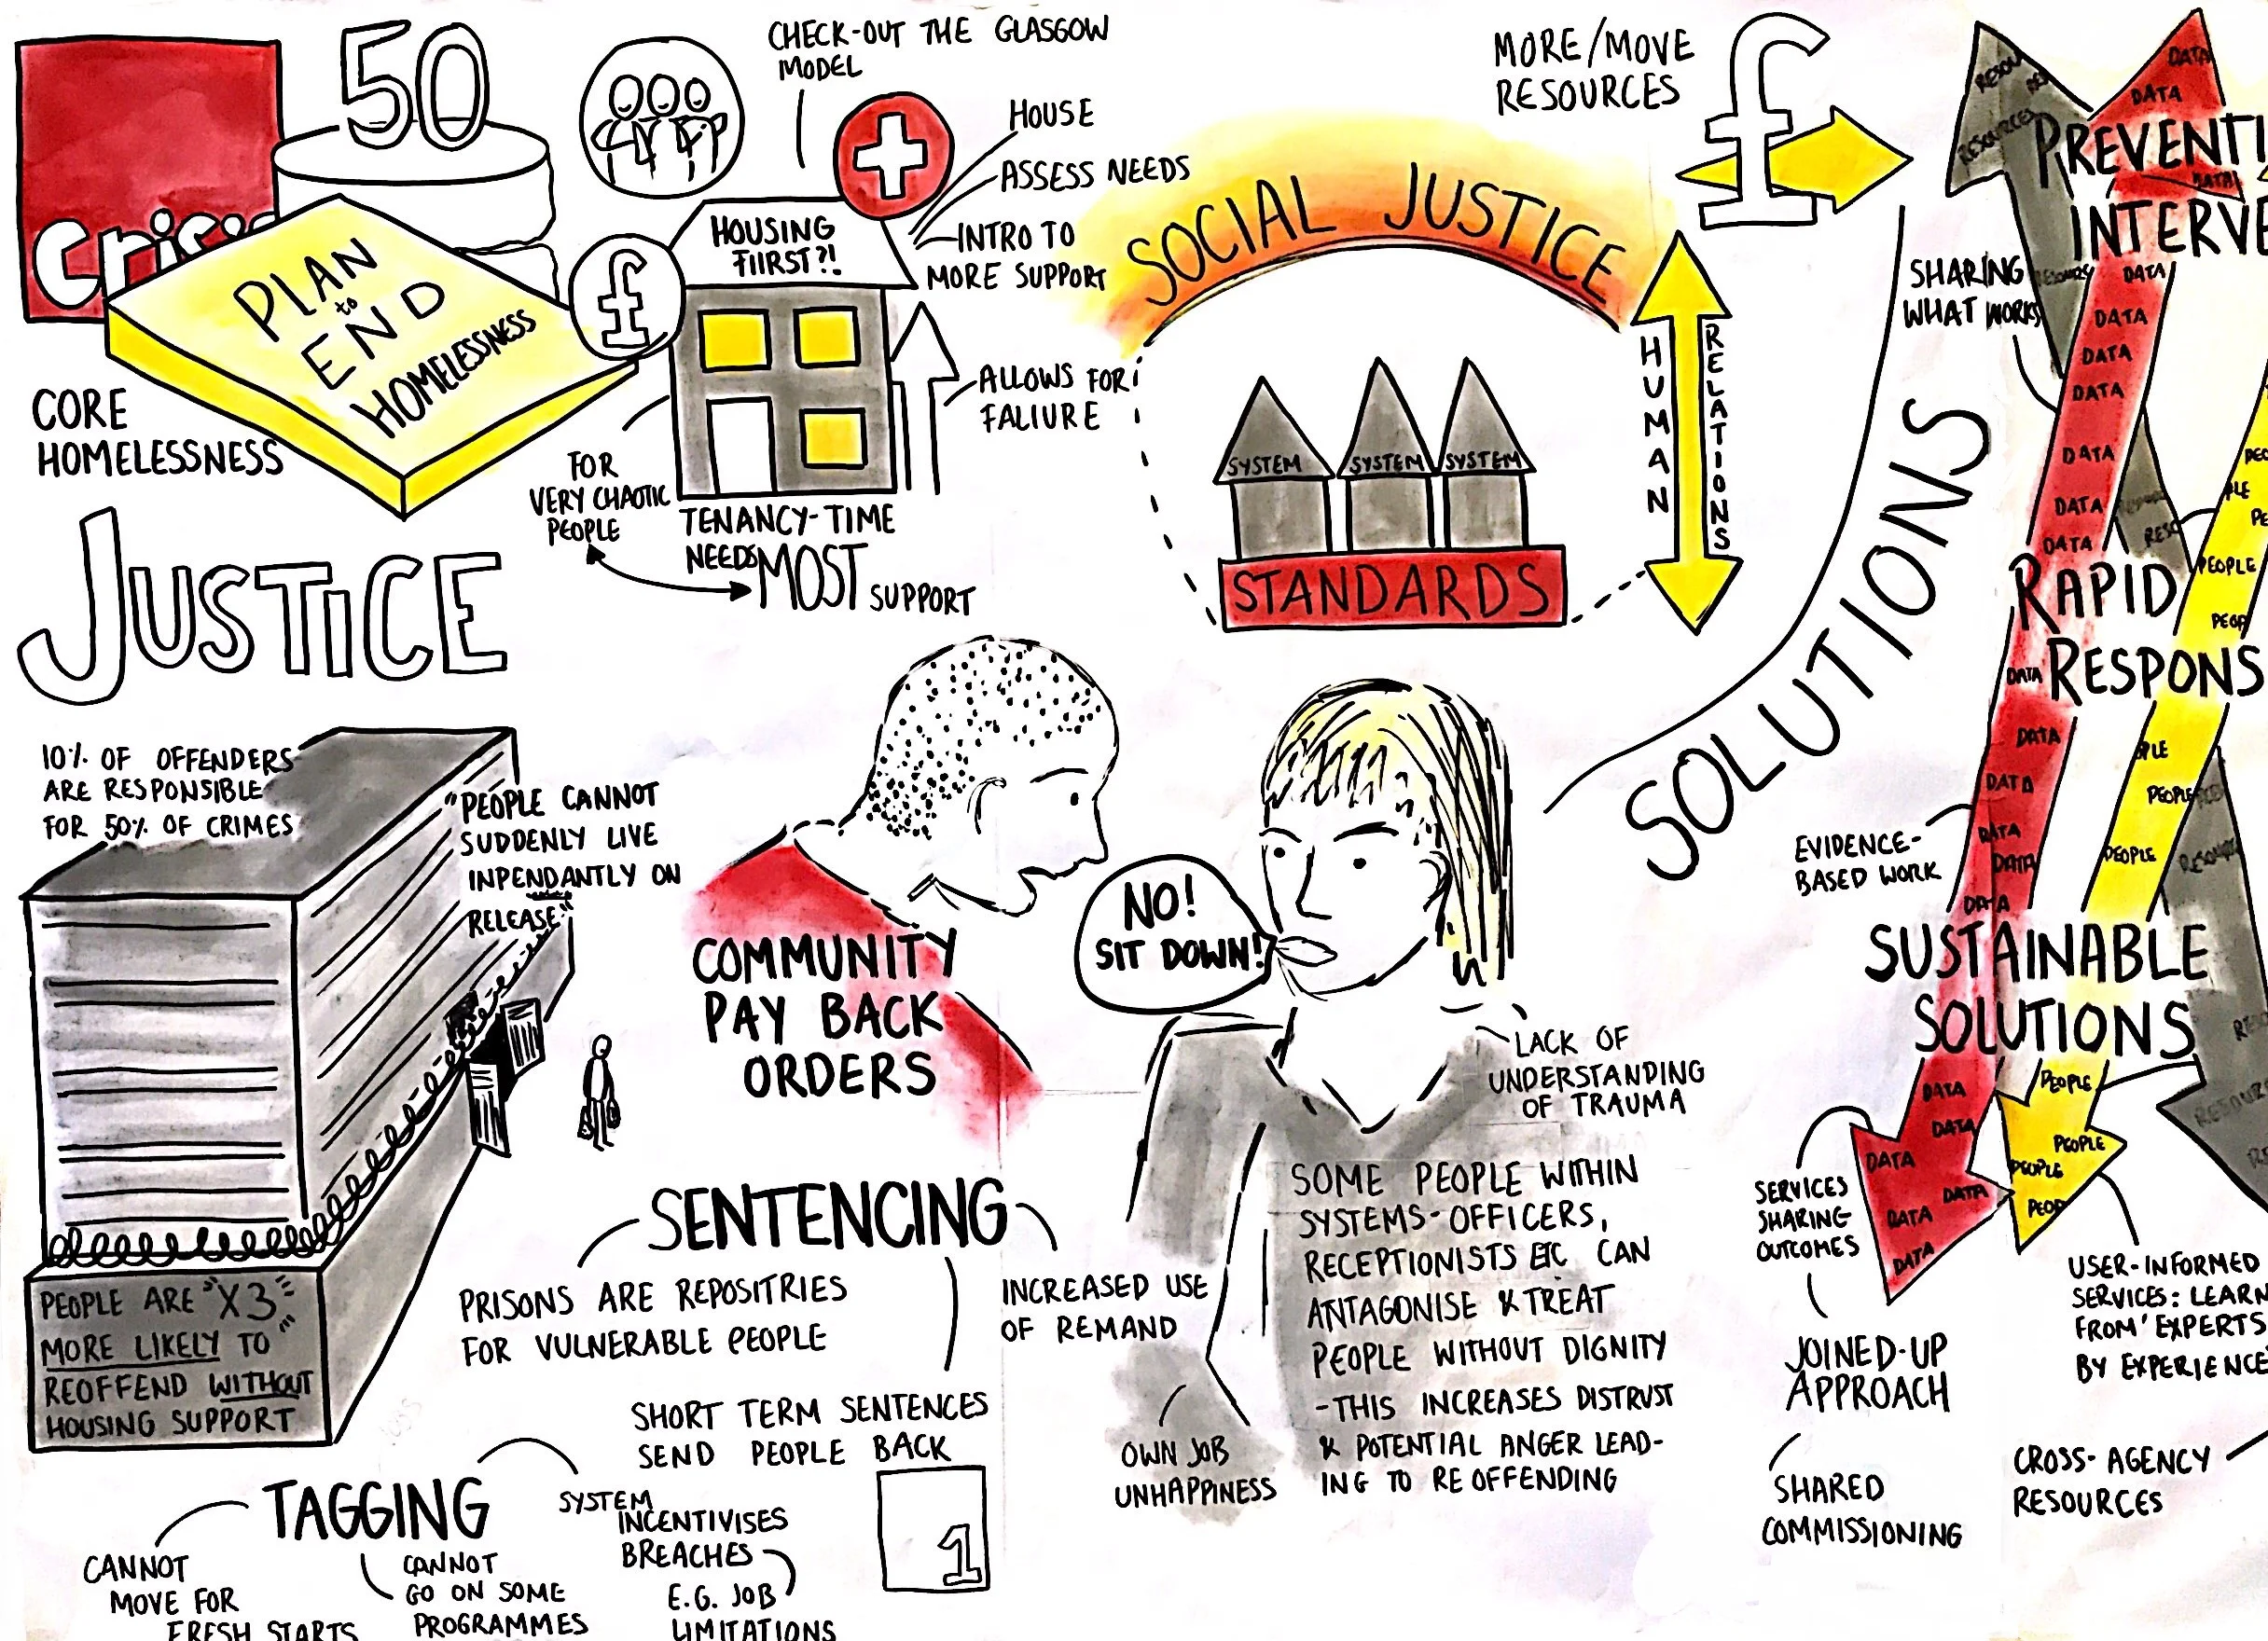 50
crisis
PLAN
to
END
HOMELESSNESS
CORE
HOMELESSNESS
CHECK-OUT THE GLASGOW
MODEL
HOUSE
ASSESS NEEDS
INTRO TO
MORE SUPPORT
HOUSING
FIIRST?!
£
ALLOWS FOR
FALIURE
FOR
VERY CHAOTIC
PEOPLE
TENANCY-TIME
NEEDS MOST SUPPORT
SOCIAL JUSTICE
SYSTEM SYSTEM SYSTEM
STANDARDS
HUMAN
RELATIONS
MORE/MOVE
RESOURCES
£
JUSTICE
10% OF OFFENDERS
ARE RESPONSIBLE
FOR 50% OF CRIMES
"PEOPLE CANNOT
SUDDENLY LIVE
INPENDANTLY ON
RELEASE"
PEOPLE ARE "X3"
MORE LIKELY TO
REOFFEND WITHOUT
HOUSING SUPPORT
COMMUNITY
PAY BACK
ORDERS
NO!
SIT DOWN!
LACK OF
UNDERSTANDING
OF TRAUMA
SOME PEOPLE WITHIN
SYSTEMS-OFFICERS,
RECEPTIONISTS ETC CAN
ANTAGONISE & TREAT
PEOPLE WITHOUT DIGNITY
-THIS INCREASES DISTRUST
& POTENTIAL ANGER LEAD-
ING TO REOFFENDING
OWN JOB
UNHAPPINESS
SENTENCING
PRISONS ARE REPOSITRIES
FOR VULNERABLE PEOPLE
INCREASED USE
OF REMAND
SHORT TERM SENTENCES
SEND PEOPLE BACK
1
TAGGING
CANNOT
MOVE FOR
FRESH STARTS
CANNOT
GO ON SOME
PROGRAMMES
SYSTEM
INCENTIVISES
BREACHES
E.G. JOB
LIMITATIONS
SOLUTIONS
RESOURCES
DATA
DATA
PREVENTI
DATA
INTERVE
SHARING
WHAT WORKS
DATA
DATA
DATA
DATA
DATA
DATA
DATA
PEOPLE
RAPID
RESPONS
DATA
DATA
DATA
PEOPLE
EVIDENCE-
BASED WORK
DATA
DATA
PEOPLE
DATA
SUSTAINABLE
SOLUTIONS
DATA
PEOPLE
DATA
PEOPLE
DATA
PEOPLE
DATA
DATA
DATA
SERVICES
SHARING
OUTCOMES
JOINED-UP
APPROACH
SHARED
COMMISSIONING
USER-INFORMED
SERVICES: LEARN
FROM 'EXPERTS
BY EXPERIENCE
CROSS-AGENCY
RESOURCES